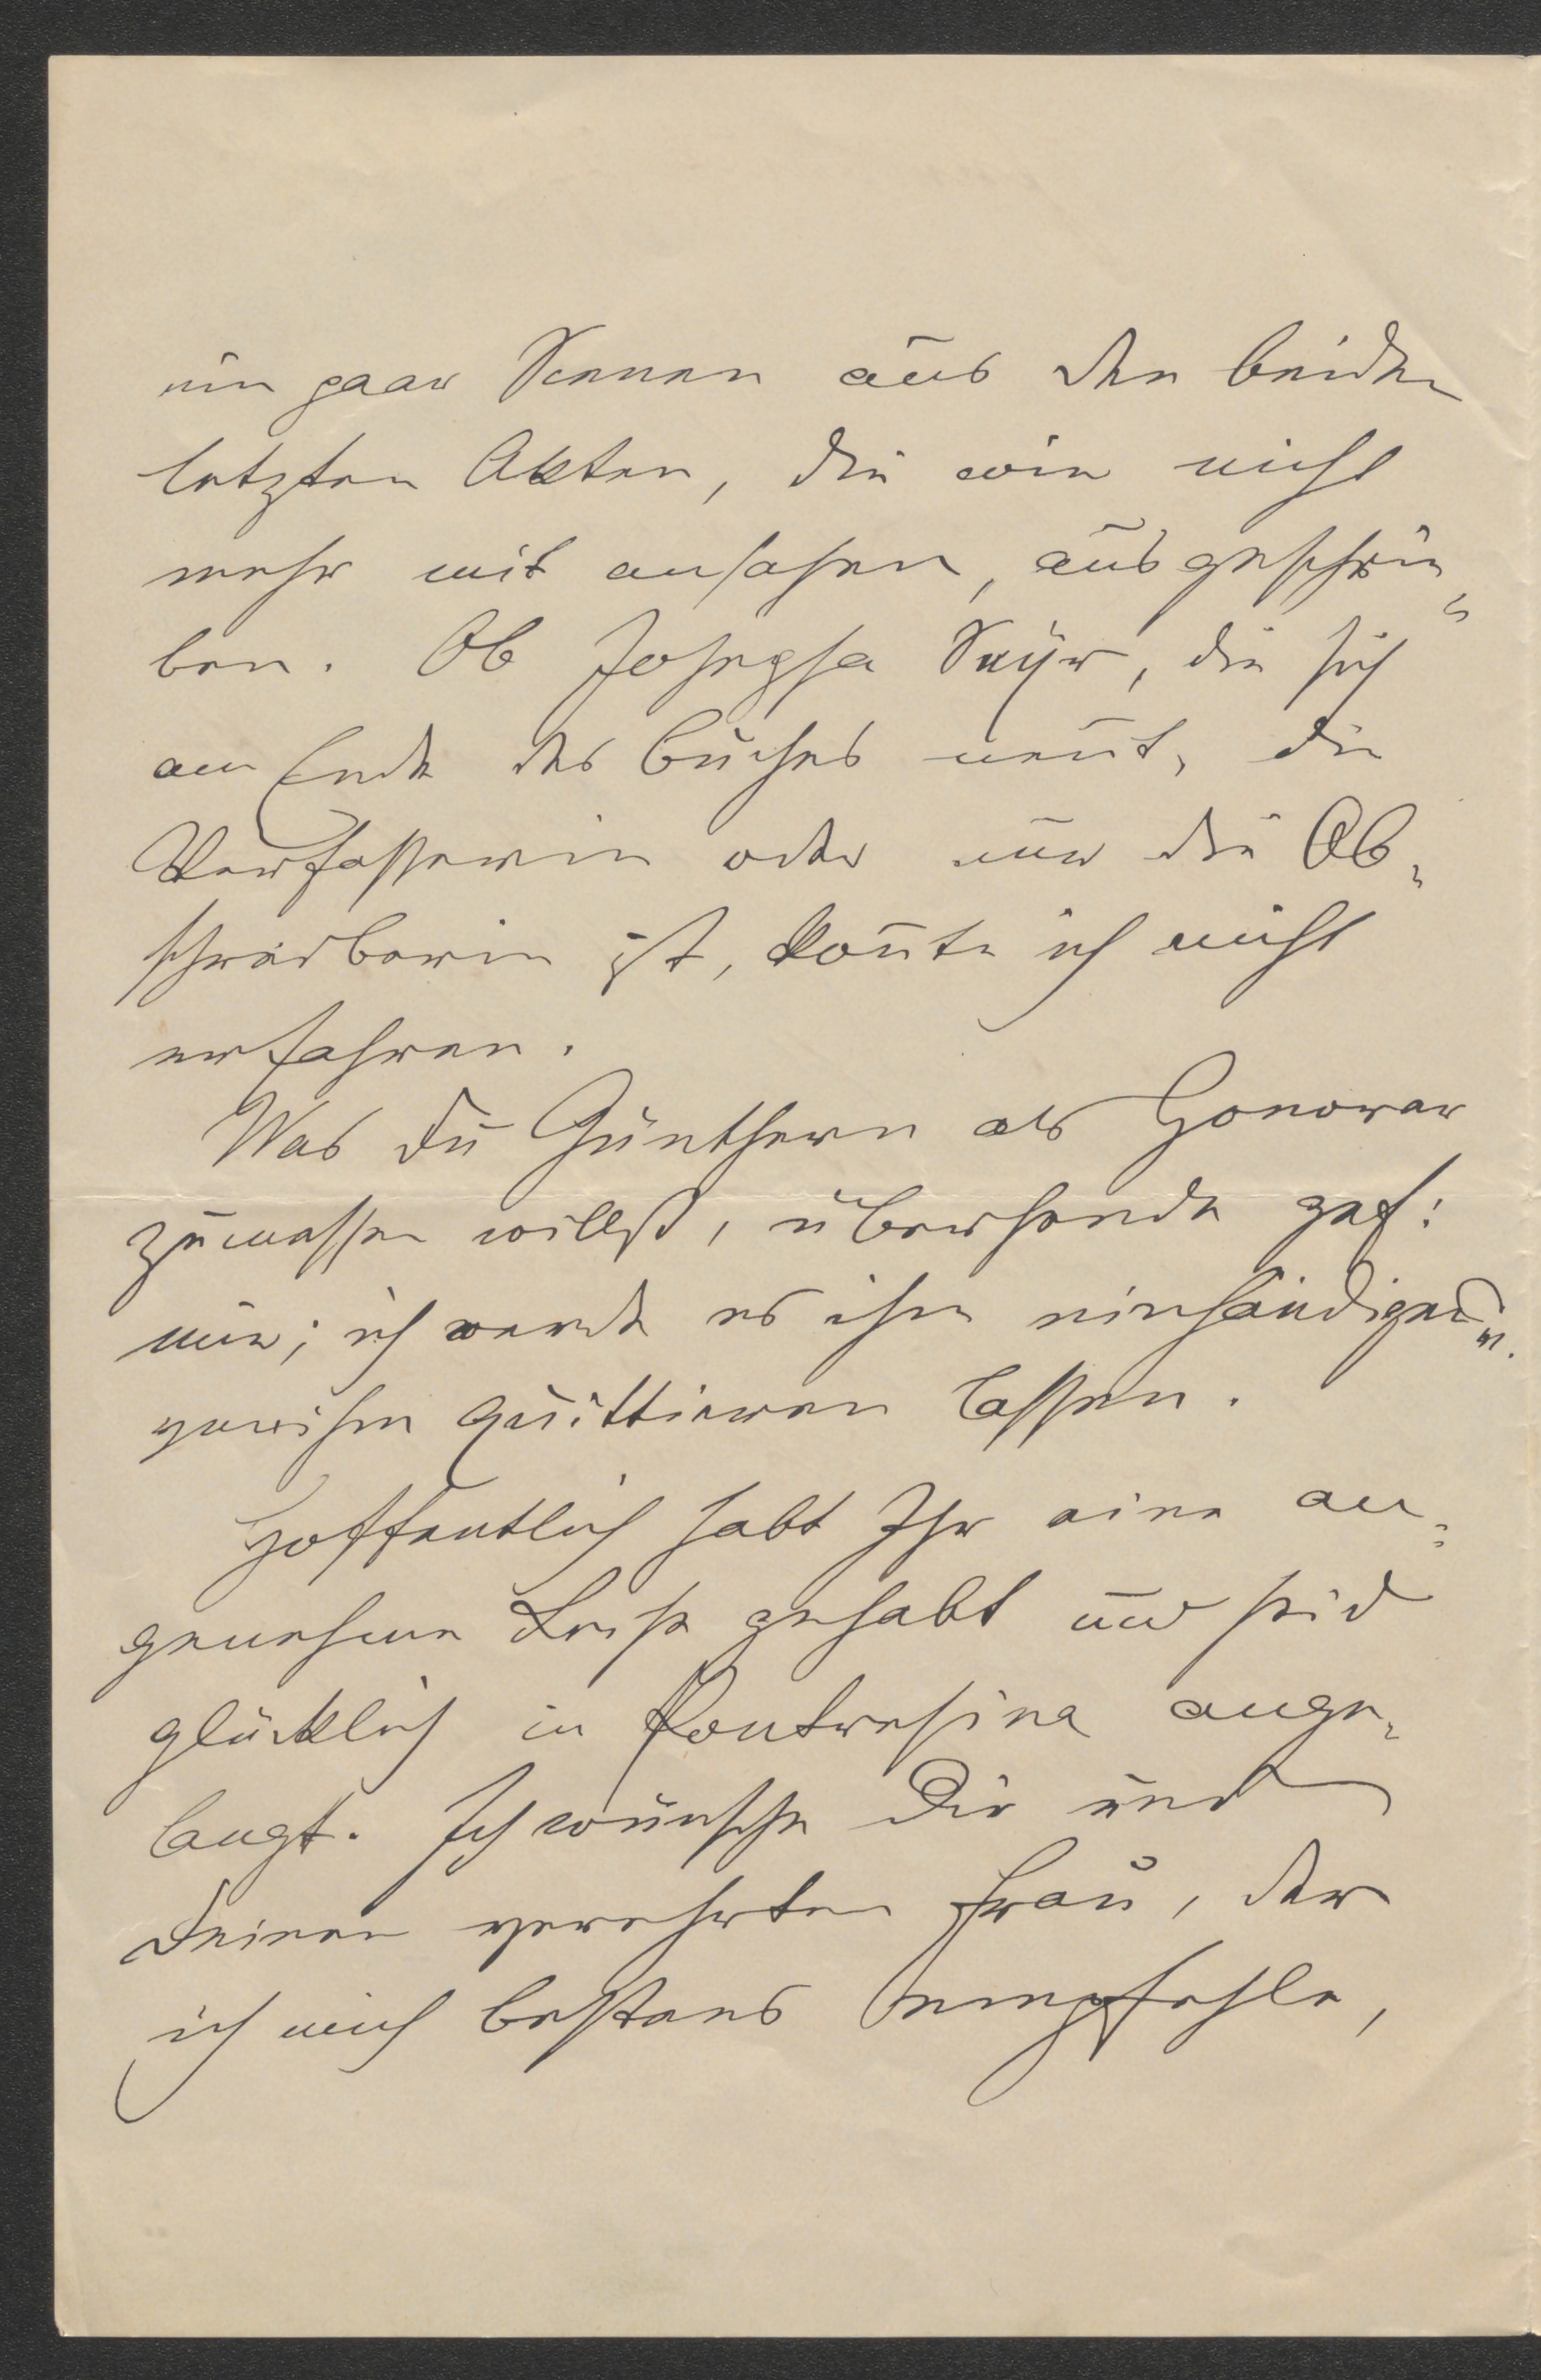 ein paar Scenen aus den beiden
letzten Akten, die wir nicht
mehr mit ansahen, ausgeschrie„
ben. Ob Josepha Sayr, die sich
am Ende des Buches nen̄t, die
Verfasserin oder nur die Ab„
schreiberin ist, kon̄te ich nicht
erfahren.
Was Du Günthern als Honorar
zumessen willst, übersende gef:
mir; ich werde es ihm einhändigen u.
von ihm quittieren lassen.
Hoffentlich habt Ihr eine an„
genehme Reise gehabt und seid
glücklich in Pontresina ange„
langt. Ich wünsche Dir und
Deiner verehrten Frau, der
ich mich bestens empfehle,